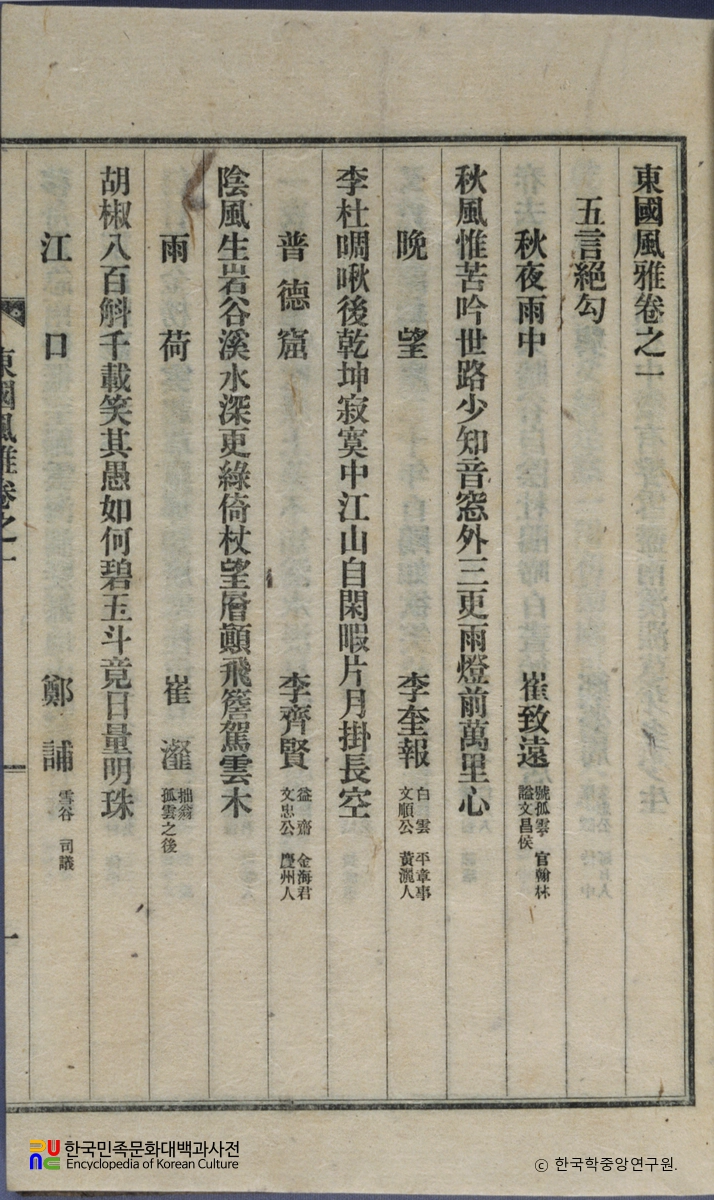 東國風雅卷之一
五言絕勾
秋夜雨中 崔致遠 號孤雲 官翰林 謚文昌侯
秋風惟苦吟世路少知音窓外三更雨燈前萬里心
晩望 李奎報 白雲 平章事 文順公 黃驪人
李杜啁啾後乾坤寂寞中江山自閑暇片月掛長空
普德窟 李齊賢 益齋 金海君 文忠公 慶州人
陰風生岩谷溪水深更綠倚杖望層顚飛簷駕雲木
雨荷 崔瀣 拙翁 孤雲之後
胡椒八百斛千載笑其愚如何碧玉斗竟日量明珠
江口 鄭誧 雪谷 司議
東國風雅卷之一
一
한국민족문화대백과사전
Encyclopedia of Korean Culture
ⓒ 한국학중앙연구원.